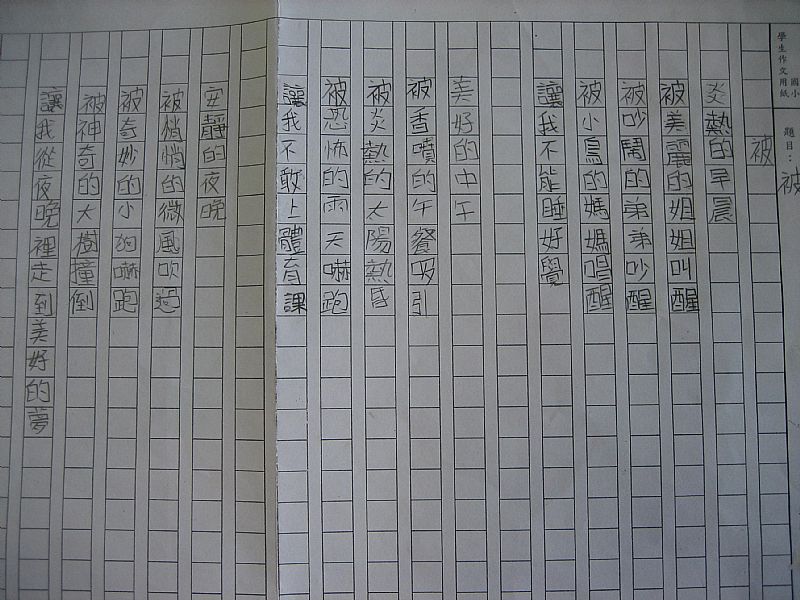 國小
學生作文用紙
題目：被
被
炎熱的早晨
被美麗的姐姐叫醒
被吵鬧的弟弟吵醒
被小鳥的媽媽唱醒
讓我不能睡好覺
美好的中午
被香噴的午餐吸引
被炎熱的太陽熱昏
被恐怖的雨天嚇跑
讓我不敢上體育課
安靜的夜晚
被悄悄的微風吹過
被奇妙的小狗嚇跑
被神奇的大樹撞倒
讓我從夜晚裡走到美好的夢